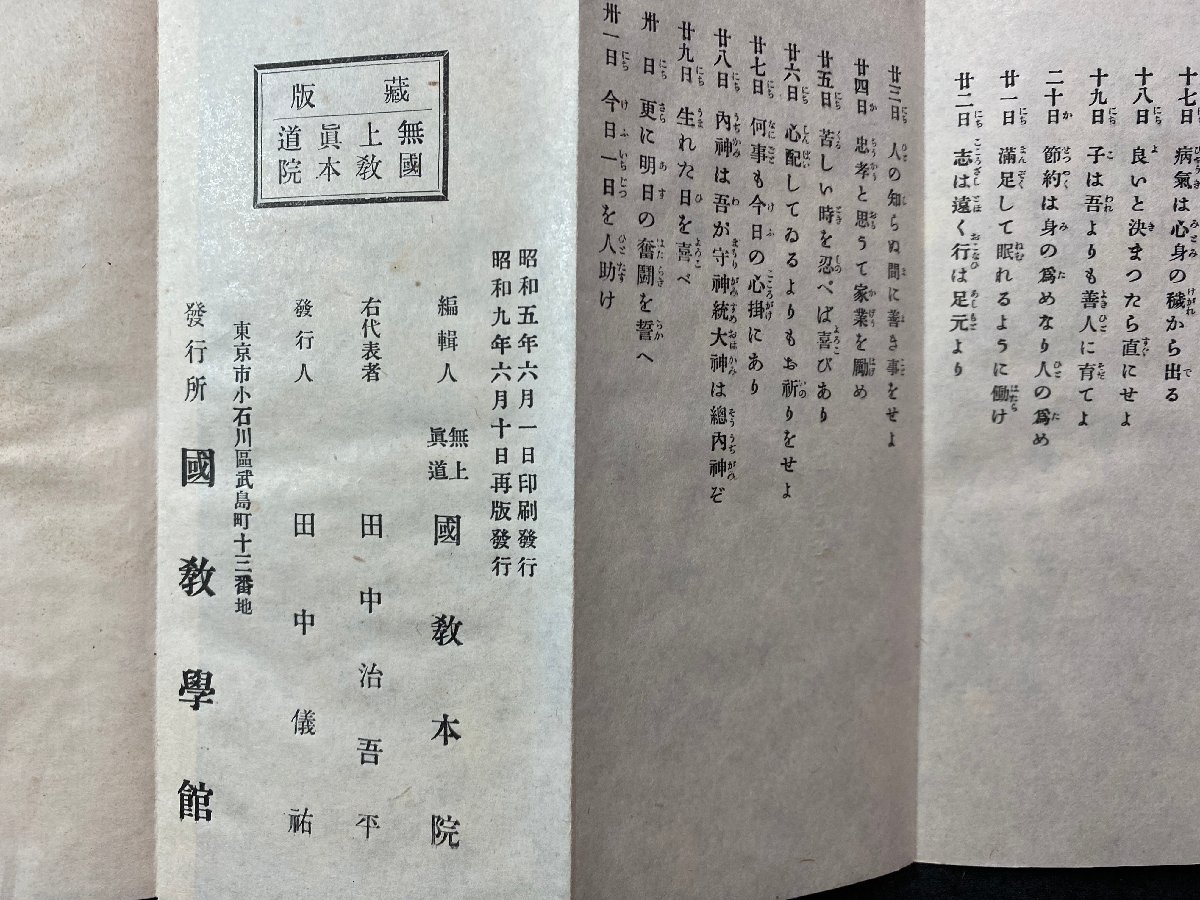 十七日 病氣は心身の穢から出る
十八日 良いと決まつたら直にせよ
十九日 子は吾よりも善人に育てよ
二十日 節約は身の爲めなり人の爲め
廿一日 滿足して眠れるように働け
廿二日 志は遠く行は足元より
廿三日 人の知らぬ間に善き事をせよ
廿四日 忠孝と思うて家業を勵め
廿五日 苦しい時を忍べば喜びあり
廿六日 心配してゐるよりもお祈りをせよ
廿七日 何事も今日の心掛にあり
廿八日 內神は吾が守神統大神は總內神ぞ
廿九日 生れた日を喜べ
卅日 更に明日の奮鬪を誓へ
卅一日 今日一日を人助け
昭和五年六月一日印刷發行
昭和九年六月十日再版發行
編輯人 無上眞道 國教本院
右代表者 田中治吾平
發行人 田中儀祐
東京市小石川區武島町十三番地
發行所 國教學館
藏版
無國
上教
眞本
道院